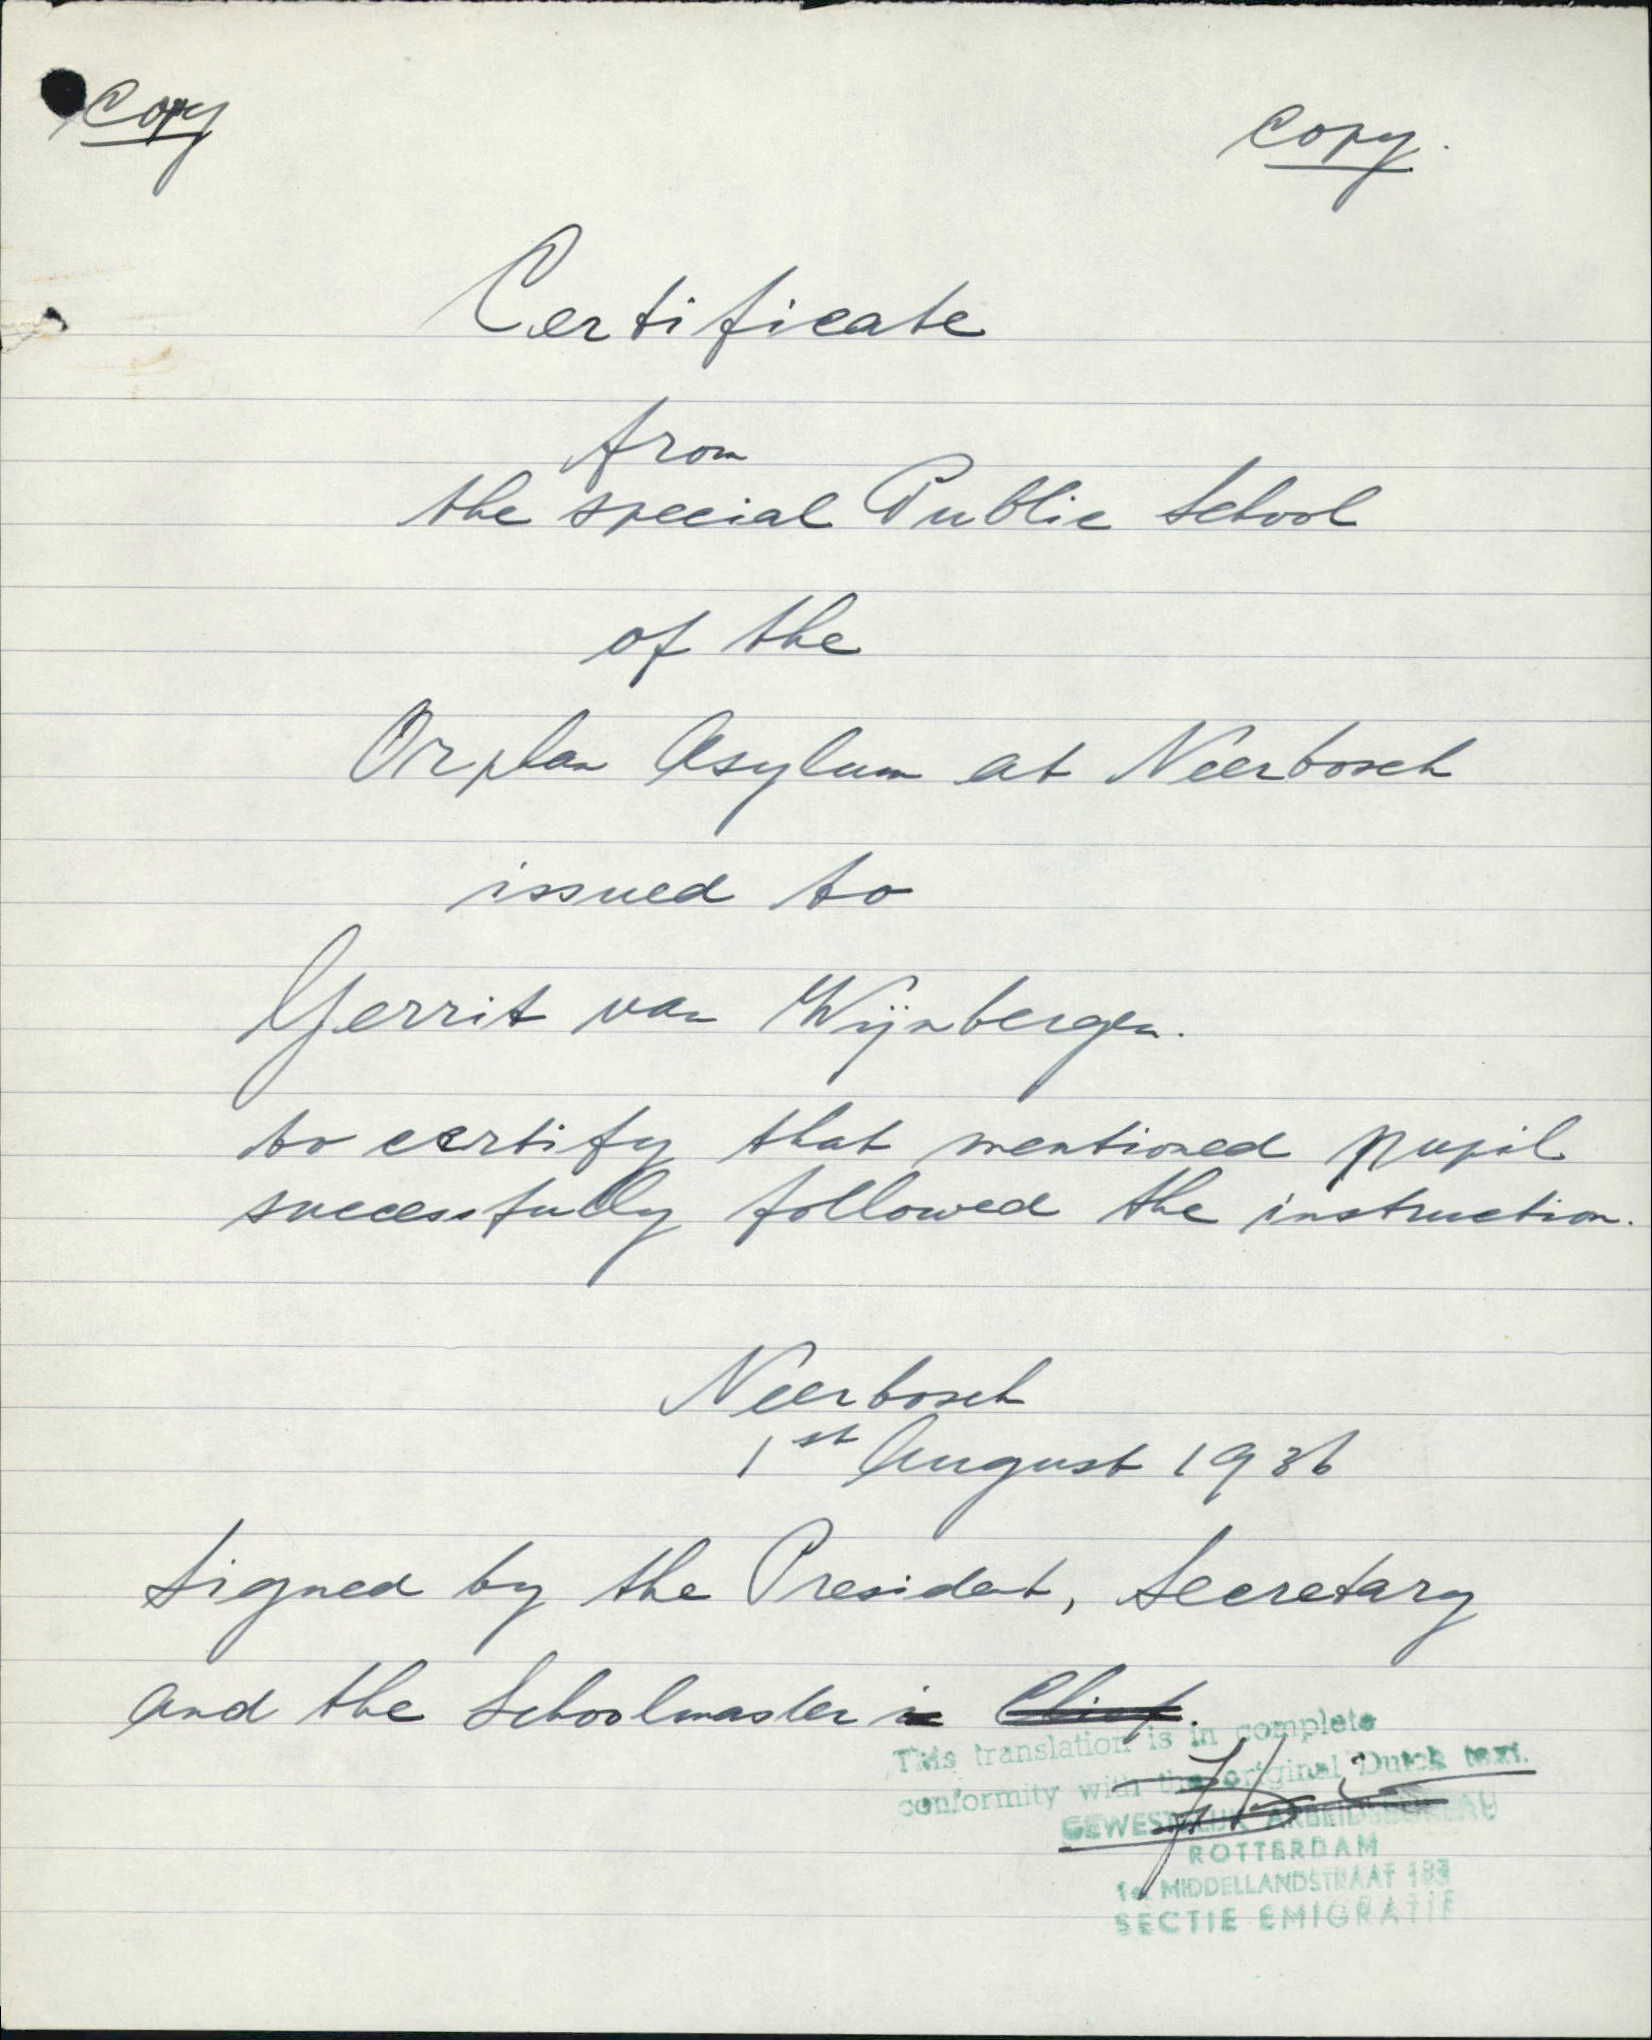 Copy
Copy.
Certificate
from
the special Public School
of the
Orphan Asylum at Neerbosch
issued to
Gerrit van Wijnbergen.
to certify that mentioned pupil
successfully followed the instruction.
Neerbosch
1st August 1936
Signed by the President, Secretary
and the Schoolmaster in Chief.
This translation is in complete
conformity with the original Dutch text.
GEWESTELIJK ARBEIDSBUREAU
ROTTERDAM
1e MIDDELLANDSTRAAT
SECTIE EMIGRATIE